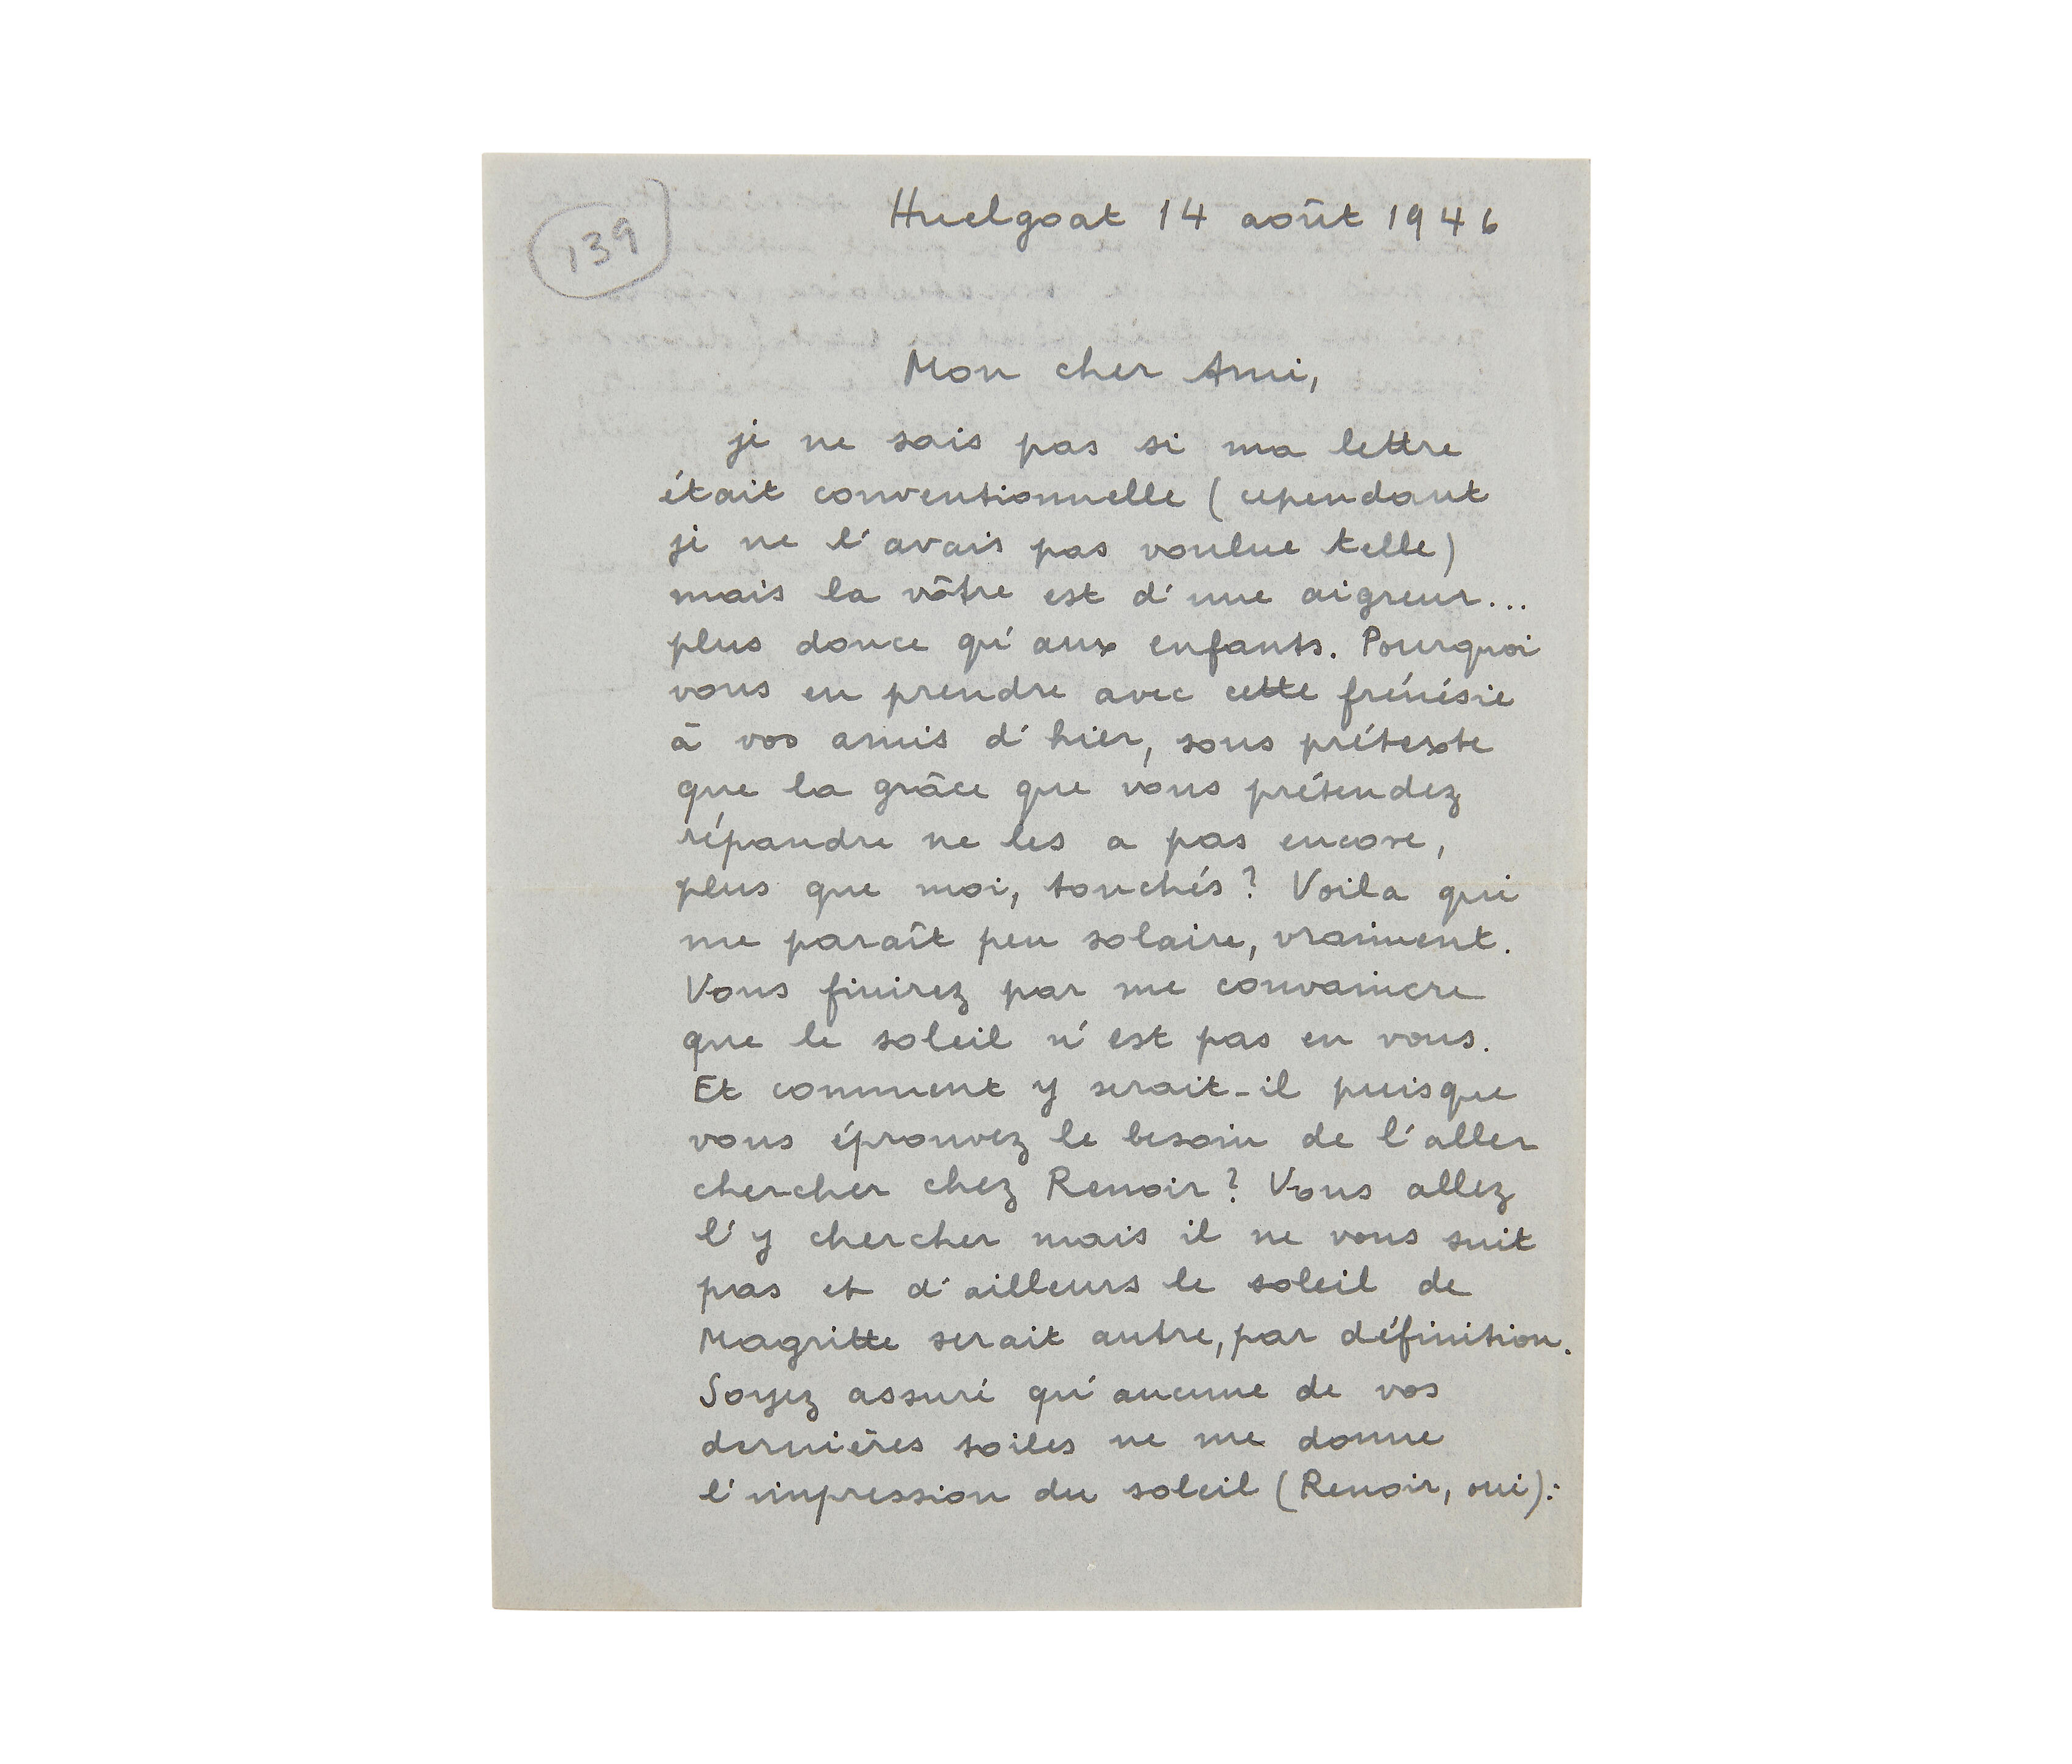 139
Huelgoat 14 août 1946
Mon cher Ami,
je ne sais pas si ma lettre
était conventionnelle (cependant
je ne l'avais pas voulue telle)
mais la vôtre est d'une aigreur...
plus douce qu'aux enfants. Pourquoi
vous en prendre avec cette frénésie
à vos amis d'hier, sous prétexte
que la grâce que vous prétendez
répandre ne les a pas encore,
plus que moi, touchés? Voila qui
me paraît peu solaire, vraiment.
Vous finirez par me convaincre
que le soleil n'est pas en vous.
Et comment y serait-il puisque
vous éprouvez le besoin de l'aller
chercher chez Renoir? Vous allez
l'y chercher mais il ne vous suit
pas et d'ailleurs le soleil de
Magritte serait autre, par définition.
Soyez assuré qu'aucune de vos
dernières toiles ne me donne
l'impression du soleil (Renoir, oui):